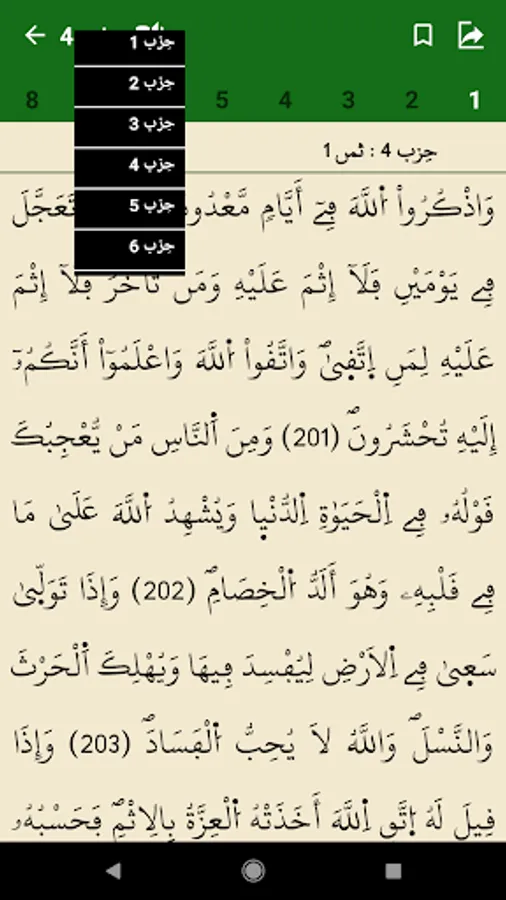 4
حزب 1
حزب 2
حزب 3
حزب 4
حزب 5
حزب 6
1 2 3 4 5 8
حزب 4 : ثمن 1
وَاذْكُرُواْ اُ۬للَّهَ فِےٓ أَيَّامٖ مَّعْدُو تَعَجَّلَ
فِے يَوْمَيْنِ فَلَآ إِثْمَ عَلَيْهِ وَمَن تَأَخَّرَ فَلَآ إِثْمَ
عَلَيْهِ لِمَنِ اِ۪تَّق۪ىٰۖ وَاتَّقُواْ اُ۬للَّهَ وَاعْلَمُوٓاْ أَنَّكُمُۥٓ
إِلَيْهِ تُحْشَرُونَۖ (201) وَمِنَ اَ۬لنَّاسِ مَنْ يُّعْجِبُكَ
قَوْلُهُۥ فِے اِ۬لْحَيَوٰةِ اِ۬لدُّنْي۪ا وَيُشْهِدُ اُ۬للَّهَ عَلَىٰ مَا
فِے قَلْبِهِۦ وَهُوَ أَلَدُّ اُ۬لْخِصَامِۖ (202) وَإِذَا تَوَلّ۪ىٰ
سَع۪ىٰ فِے اِ۬لَارْضِ لِيُفْسِدَ فِيهَا وَيُهْلِكَ اَ۬لْحَرْثَ
وَالنَّسْلَۖ وَاللَّهُ لَا يُحِبُّ اُ۬لْفَسَادَۖ (203) وَإِذَا
قِيلَ لَهُ اُ۪تَّقِ اِ۬للَّهَ أَخَذَتْهُ اُ۬لْعِزَّةُ بِالِاثْمِۖ فَحَسْبُهُۥ